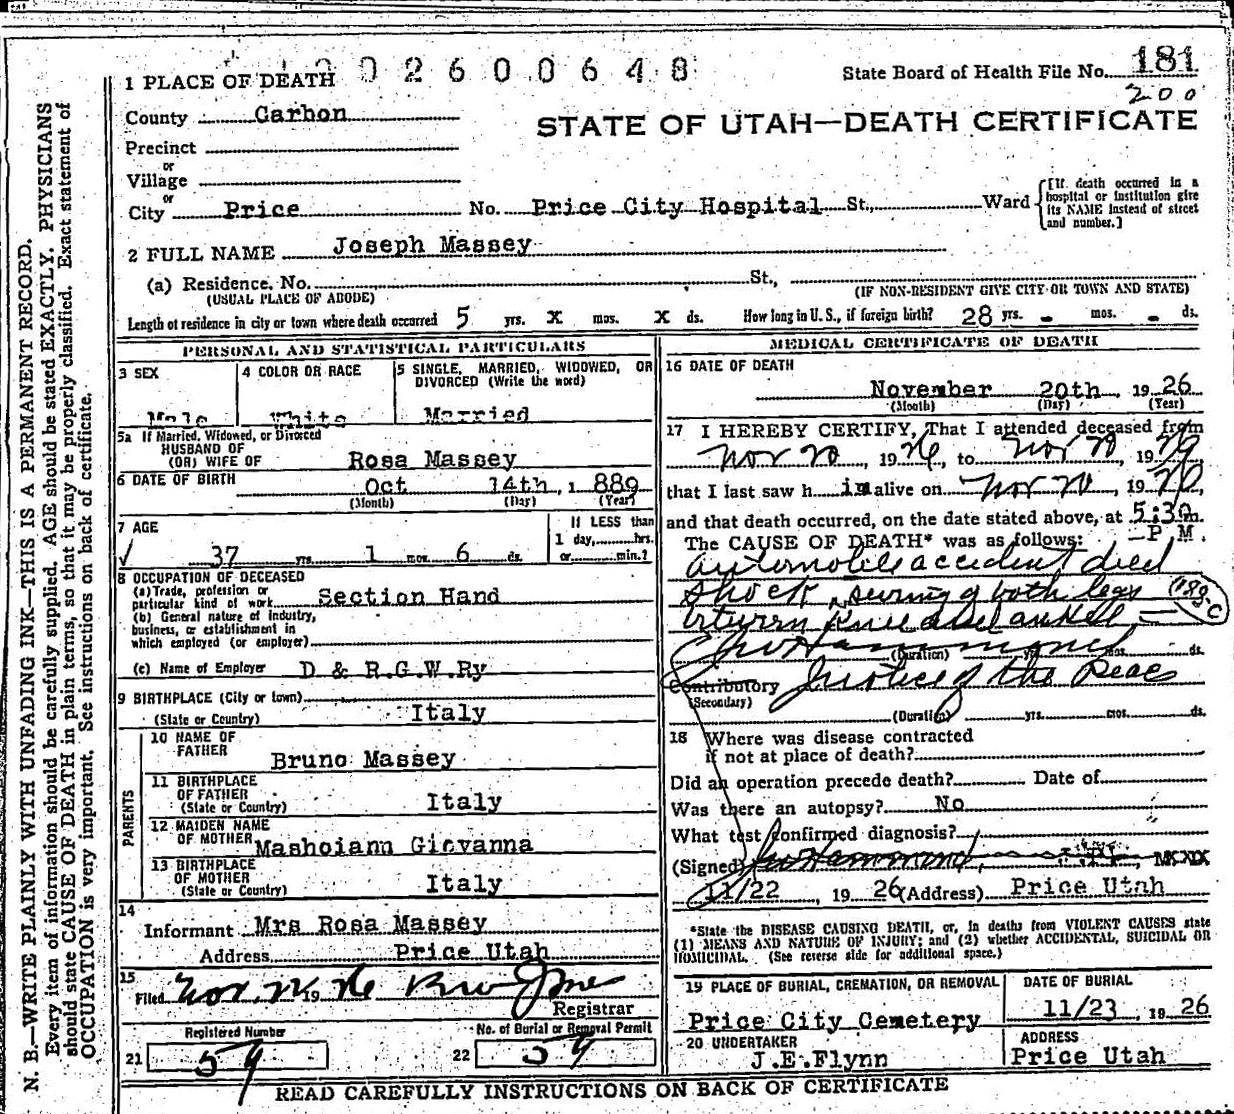 02600648
State Board of Health File No. 181
200
1 PLACE OF DEATH
County Carbon
STATE OF UTAH—DEATH CERTIFICATE
Precinct
or
Village
or
City Price No. Price City Hospital St., Ward
[If death occurred in a hospital or institution give its NAME instead of street and number.]
2 FULL NAME Joseph Massey
(a) Residence. No. St.,
(USUAL PLACE OF ABODE) (IF NON-RESIDENT GIVE CITY OR TOWN AND STATE)
Length of residence in city or town where death occurred 5 yrs. X mos. X ds. How long in U. S., if foreign birth? 28 yrs. - mos. - ds.
PERSONAL AND STATISTICAL PARTICULARS
3 SEX Male
4 COLOR OR RACE White
5 SINGLE, MARRIED, WIDOWED, OR DIVORCED (Write the word) Married
5a If Married, Widowed, or Divorced
HUSBAND OF
(OR) WIFE OF Rosa Massey
6 DATE OF BIRTH Oct 14th, 1889
(Month) (Day) (Year)
7 AGE
37 yrs. 1 mos. 6 ds.
If LESS than
1 day, hrs.
or min.?
8 OCCUPATION OF DECEASED
(a) Trade, profession or
particular kind of work Section Hand
(b) General nature of industry,
business, or establishment in
which employed (or employer)
(c) Name of Employer D & R.G.W.Ry
9 BIRTHPLACE (City or town)
(State or Country) Italy
PARENTS
10 NAME OF
FATHER Bruno Massey
11 BIRTHPLACE
OF FATHER
(State or Country) Italy
12 MAIDEN NAME
OF MOTHER Mashoiann Giovanna
13 BIRTHPLACE
OF MOTHER
(State or Country) Italy
14
Informant Mrs Rosa Massey
Address Price Utah
15
Filed Nor. 19
Registrar
Registered Number
21 59
No. of Burial or Removal Permit
22 59
MEDICAL CERTIFICATE OF DEATH
16 DATE OF DEATH
November 20th 1926
(Month) (Day) (Year)
17 I HEREBY CERTIFY, That I attended deceased from
Nov 20, 1926, to Nov 20, 1926
that I last saw him alive on Nov 20, 19
and that death occurred, on the date stated above, at 5:30 m.
The CAUSE OF DEATH* was as follows: P M.
automobile accident died
shock, severing of both legs 188-C
between knee and ankel
(Duration) yrs. mos. ds.
Contributory Justice of the Peace
(Secondary)
(Duration) yrs. mos. ds.
18 Where was disease contracted
if not at place of death?
Did an operation precede death? Date of
Was there an autopsy? No
What test confirmed diagnosis?
(Signed) Hammond, J.P.
11/22, 1926 (Address) Price Utah
*State the DISEASE CAUSING DEATH, or, in deaths from VIOLENT CAUSES state
(1) MEANS AND NATURE OF INJURY; and (2) whether ACCIDENTAL, SUICIDAL OR
HOMICIDAL. (See reverse side for additional space.)
19 PLACE OF BURIAL, CREMATION, OR REMOVAL
Price City Cemetery
DATE OF BURIAL
11/23, 1926
20 UNDERTAKER
J.E.Flynn
ADDRESS
Price Utah
READ CAREFULLY INSTRUCTIONS ON BACK OF CERTIFICATE
N. B.—WRITE PLAINLY WITH UNFADING INK—THIS IS A PERMANENT RECORD.
Every item of information should be carefully supplied. AGE should be stated EXACTLY. PHYSICIANS
should state CAUSE OF DEATH in plain terms, so that it may be properly classified. Exact statement of
OCCUPATION is very important. See instructions on back of certificate.